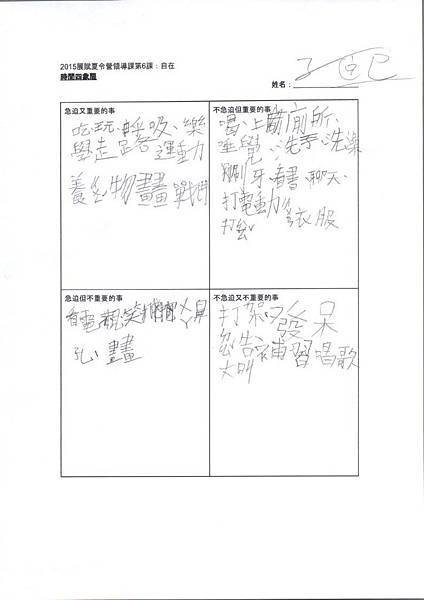 2015展賦夏令營領導課第6課：自在
時間四象限
姓名：
急迫又重要的事
吃、玩、呼吸、樂
學走路、運動
養生物、畫畫、戰鬥
不急迫但重要的事
喝、上廁所、
睡覺、洗手、洗澡
刷牙、看書、聊天、
打電動
衣服
急迫但不重要的事
看電視、笑、
孔、畫畫
不急迫又不重要的事
打架、發呆
告、補習、唱歌
大叫